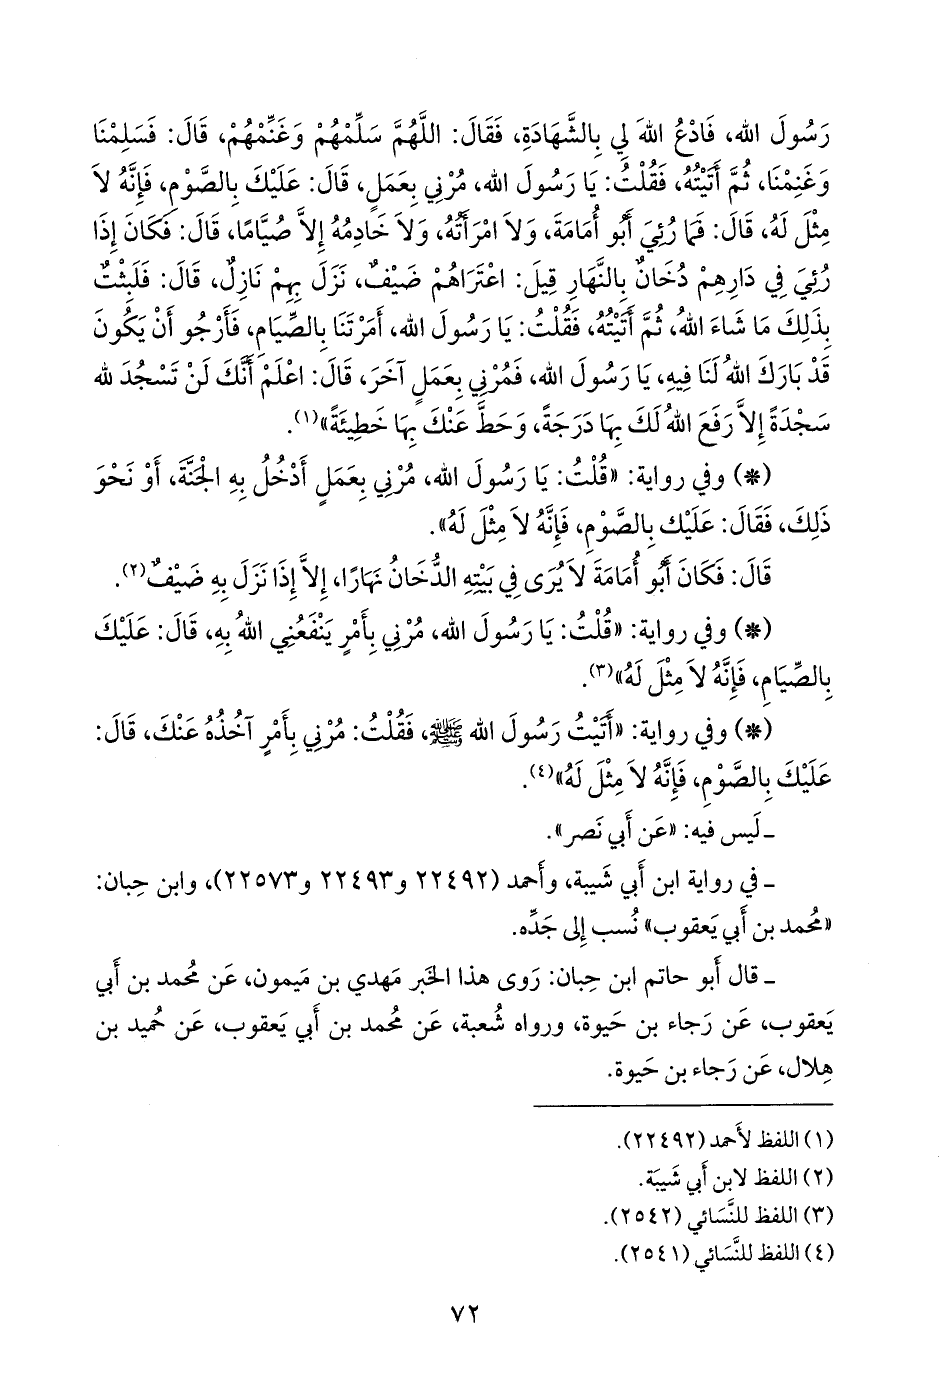 رَسُولَ الله، فَادْعُ اللهَ لِي بِالشَّهَادَةِ، فَقَالَ: اللَّهُمَّ سَلِّمْهُمْ وَغَنِّمْهُمْ، قَالَ: فَسَلِمْنَا
وَغَنِمْنَا، ثُمَّ أَتَيْتُهُ، فَقُلْتُ: يَا رَسُولَ الله، مُرْنِي بِعَمَلٍ، قَالَ: عَلَيْكَ بِالصَّوْمِ، فَإِنَّهُ لاَ
مِثْلَ لَهُ، قَالَ: فَمَا رُئِيَ أَبُو أُمَامَةَ، وَلاَ امْرَأَتُهُ، وَلاَ خَادِمُهُ إِلاَّ صُيَّامًا، قَالَ: فَكَانَ إِذَا
رُئِيَ فِي دَارِهِمْ دُخَانٌ بِالنَّهَارِ قِيلَ: اعْتَرَاهُمْ ضَيْفٌ، نَزَلَ بِهِمْ نَازِلٌ، قَالَ: فَلَبِثْتُ
بِذَلِكَ مَا شَاءَ اللهُ، ثُمَّ أَتَيْتُهُ، فَقُلْتُ: يَا رَسُولَ الله، أَمَرْتَنَا بِالصِّيَامِ، فَأَرْجُو أَنْ يَكُونَ
قَدْ بَارَكَ اللهُ لَنَا فِيهِ، يَا رَسُولَ الله، فَمُرْنِي بِعَمَلٍ آخَرَ، قَالَ: اعْلَمْ أَنَّكَ لَنْ تَسْجُدَ لله
سَجْدَةً إِلاَّ رَفَعَ اللهُ لَكَ بِهَا دَرَجَةً، وَحَطَّ عَنْكَ بِهَا خَطِيئَةً»(١).
(*) وفي رواية: «قُلْتُ: يَا رَسُولَ الله، مُرْنِي بِعَمَلٍ أَدْخُلُ بِهِ الْجَنَّةَ، أَوْ نَحْوَ
ذَلِكَ، فَقَالَ: عَلَيْك بِالصَّوْمِ، فَإِنَّهُ لاَ مِثْلَ لَهُ».
قَالَ: فَكَانَ أَبُو أُمَامَةَ لاَ يُرَى فِي بَيْتِهِ الدُّخَانُ نَهَارًا، إِلاَّ إِذَا نَزَلَ بِهِ ضَيْفٌ(٢).
(*) وفي رواية: «قُلْتُ: يَا رَسُولَ الله، مُرْنِي بِأَمْرٍ يَنْفَعُنِي اللهُ بِهِ، قَالَ: عَلَيْكَ
بِالصِّيَامِ، فَإِنَّهُ لاَ مِثْلَ لَهُ»(٣).
(*) وفي رواية: «أَتَيْتُ رَسُولَ الله ﷺ، فَقُلْتُ: مُرْنِي بِأَمْرٍ آخُذُهُ عَنْكَ، قَالَ:
عَلَيْكَ بِالصَّوْمِ، فَإِنَّهُ لاَ مِثْلَ لَهُ»(٤).
ـ لَيس فيه: «عَن أَبي نَصر».
ـ في رواية ابن أَبي شَيبة، وأَحمد (٢٢٤٩٢ و٢٢٤٩٣ و٢٢٥٧٣)، وابن حِبان:
«مُحمد بن أَبي يَعقوب» نُسب إِلى جَدِّه.
ـ قال أَبو حاتم ابن حِبان: رَوى هذا الخَبر مَهدي بن مَيمون، عَن مُحمد بن أَبي
يَعقوب، عَن رَجاء بن حَيوة، ورواه شُعبة، عَن مُحمد بن أَبي يَعقوب، عَن حُميد بن
هِلال، عَن رَجاء بن حَيوة.
(١) اللفظ لأَحمد (٢٢٤٩٢).
(٢) اللفظ لابن أَبي شَيبَة.
(٣) اللفظ للنَّسَائي (٢٥٤٢).
(٤) اللفظ للنَّسَائي (٢٥٤١).
٧٢